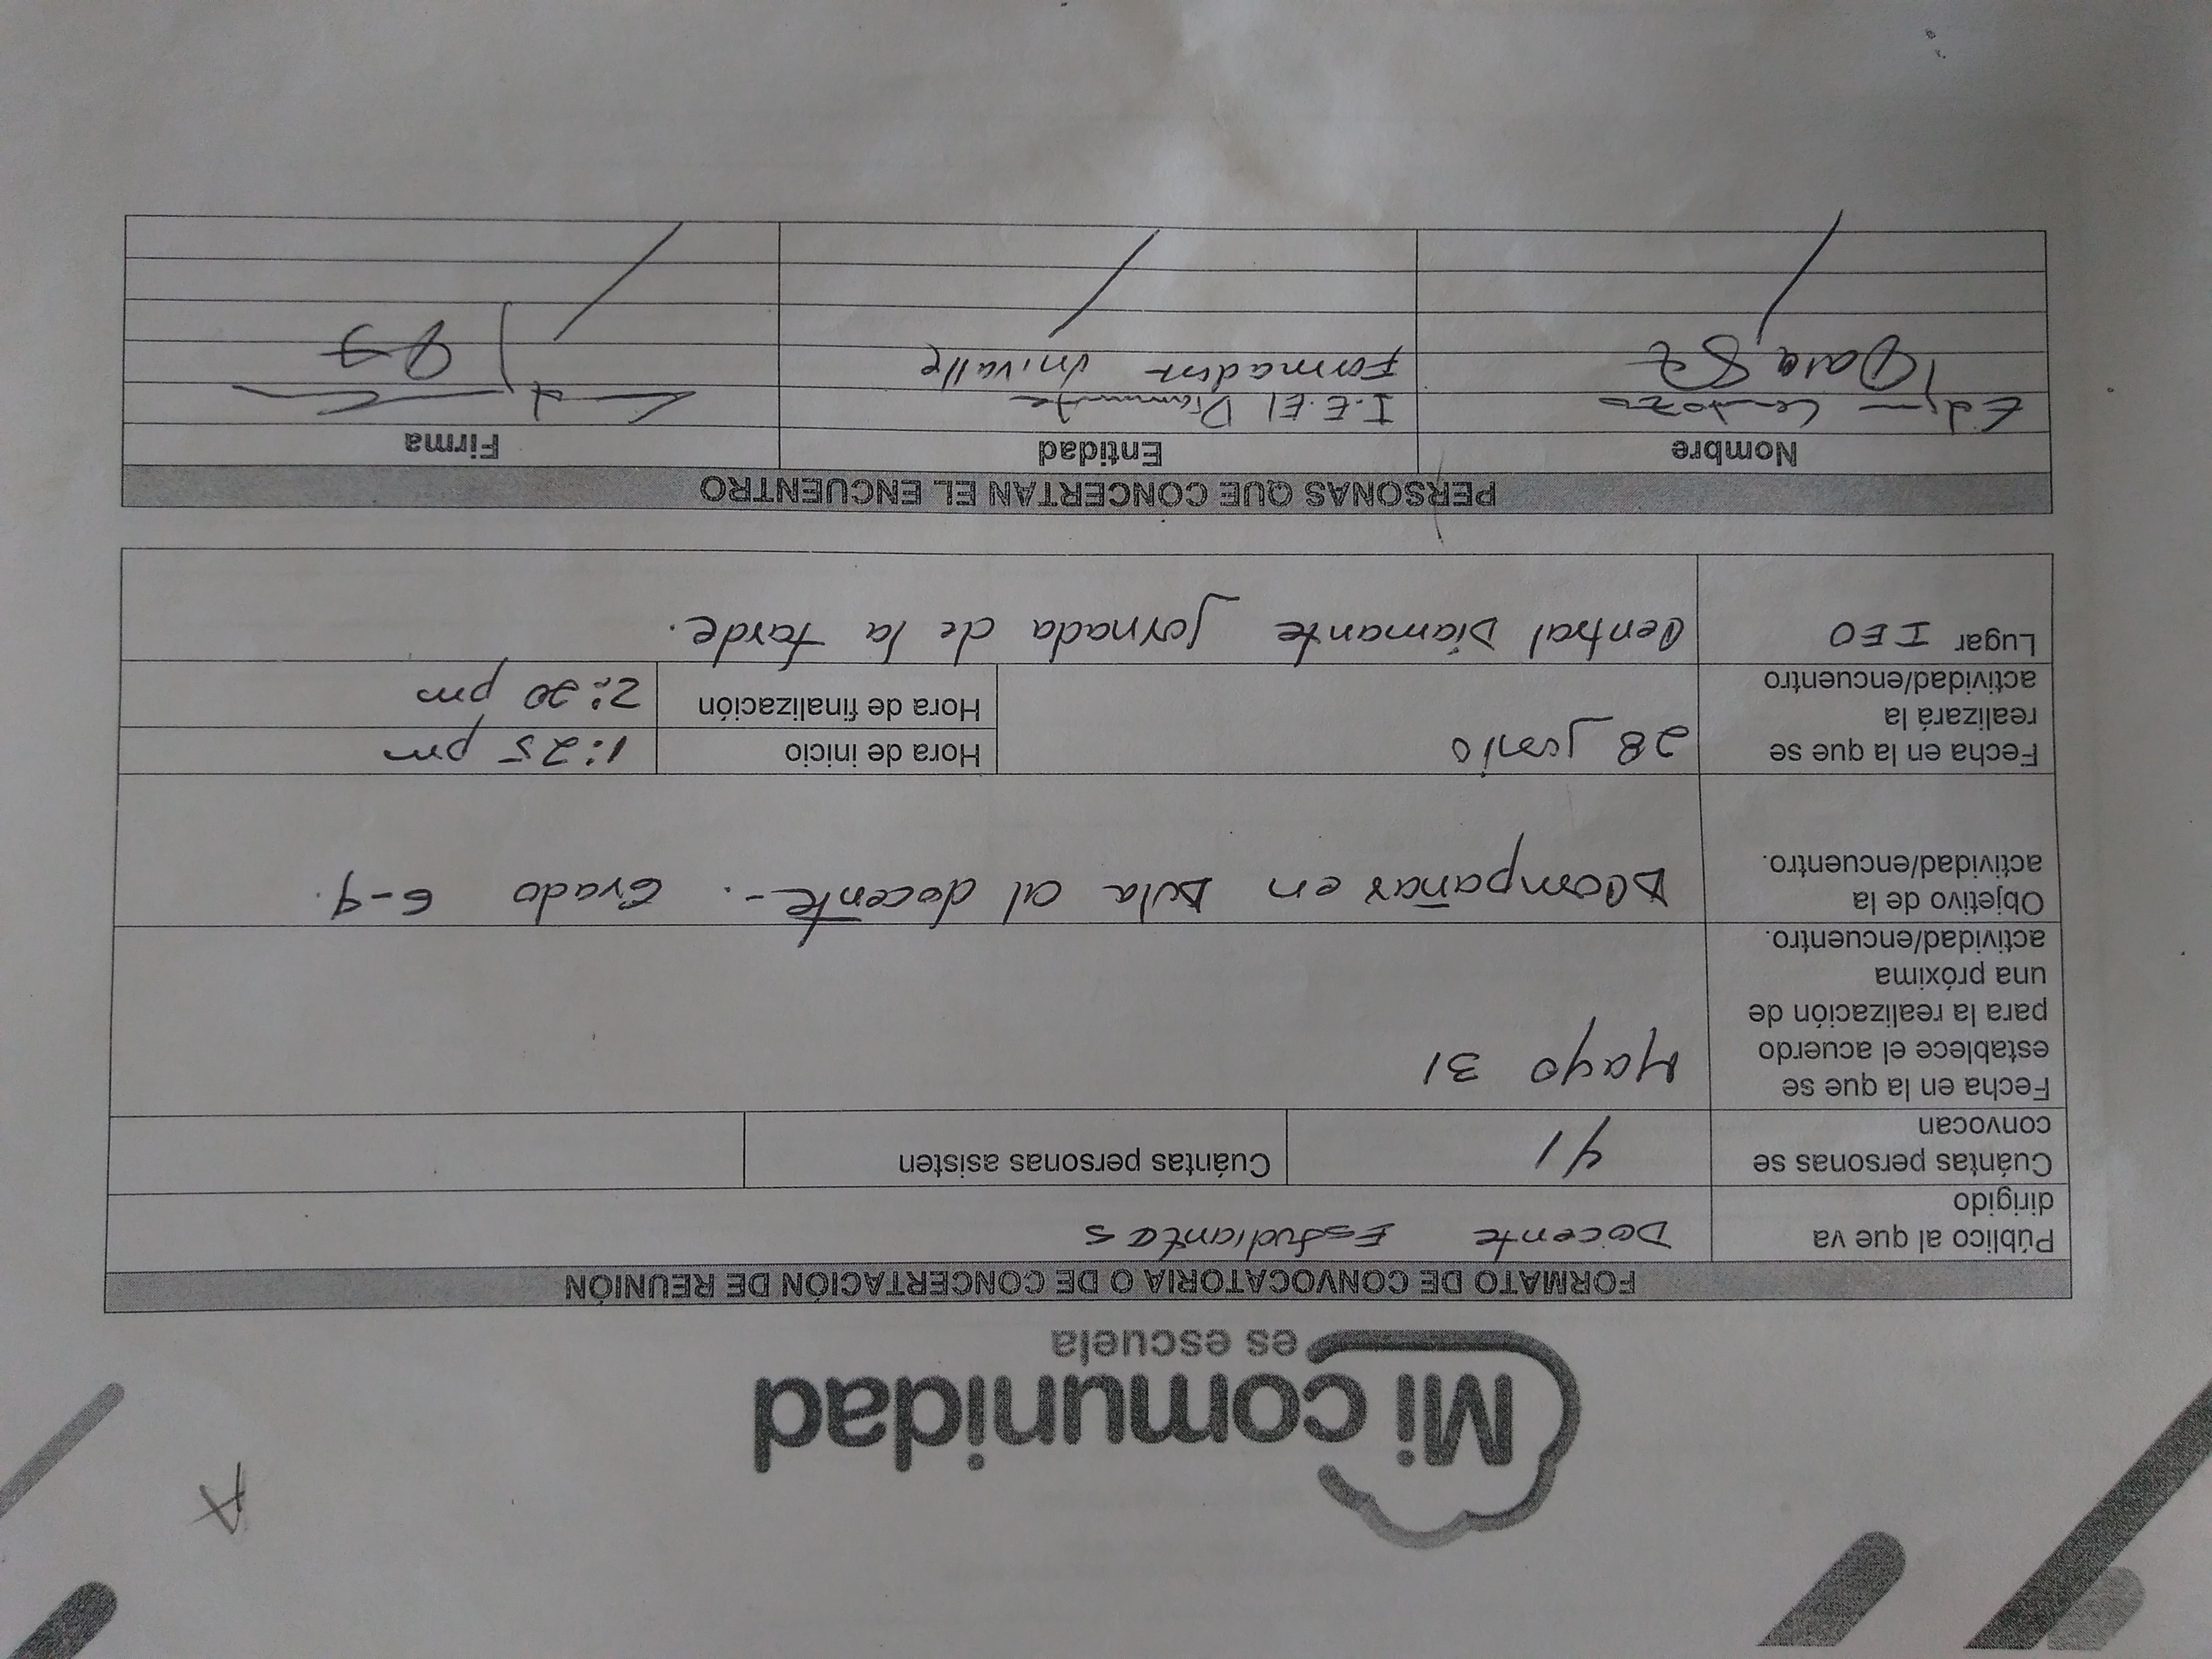 A
Mi comunidad
es escuela
FORMATO DE CONVOCATORIA O DE CONCERTACIÓN DE REUNIÓN
Público al que va
dirigido
Docente Estudiantes
Cuántas personas se
convocan
41
Cuántas personas asisten
Fecha en la que se
establece el acuerdo
para la realización de
una próxima
actividad/encuentro.
Mayo 31
Objetivo de la
actividad/encuentro.
Acompañar en Aula al docente-. Grado 6-4.
Fecha en la que se
realizará la
actividad/encuentro
28 junio
Hora de inicio
1:25 pm
Hora de finalización
2:20 pm
Lugar IEO
Central Diamante jornada de la tarde.
PERSONAS QUE CONCERTAN EL ENCUENTRO
Nombre Entidad Firma
Edgar I.E. El Diamante
Formador Univalle